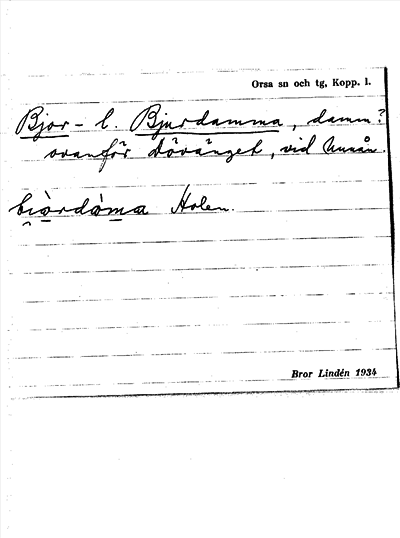 Orsa sn och tg, Kopp. l.
Bjor- l. Bjurdamma, damm?
ovanför Lövänget, vid Unnån.
biòrdòma Holen.
Bror Lindén 1934